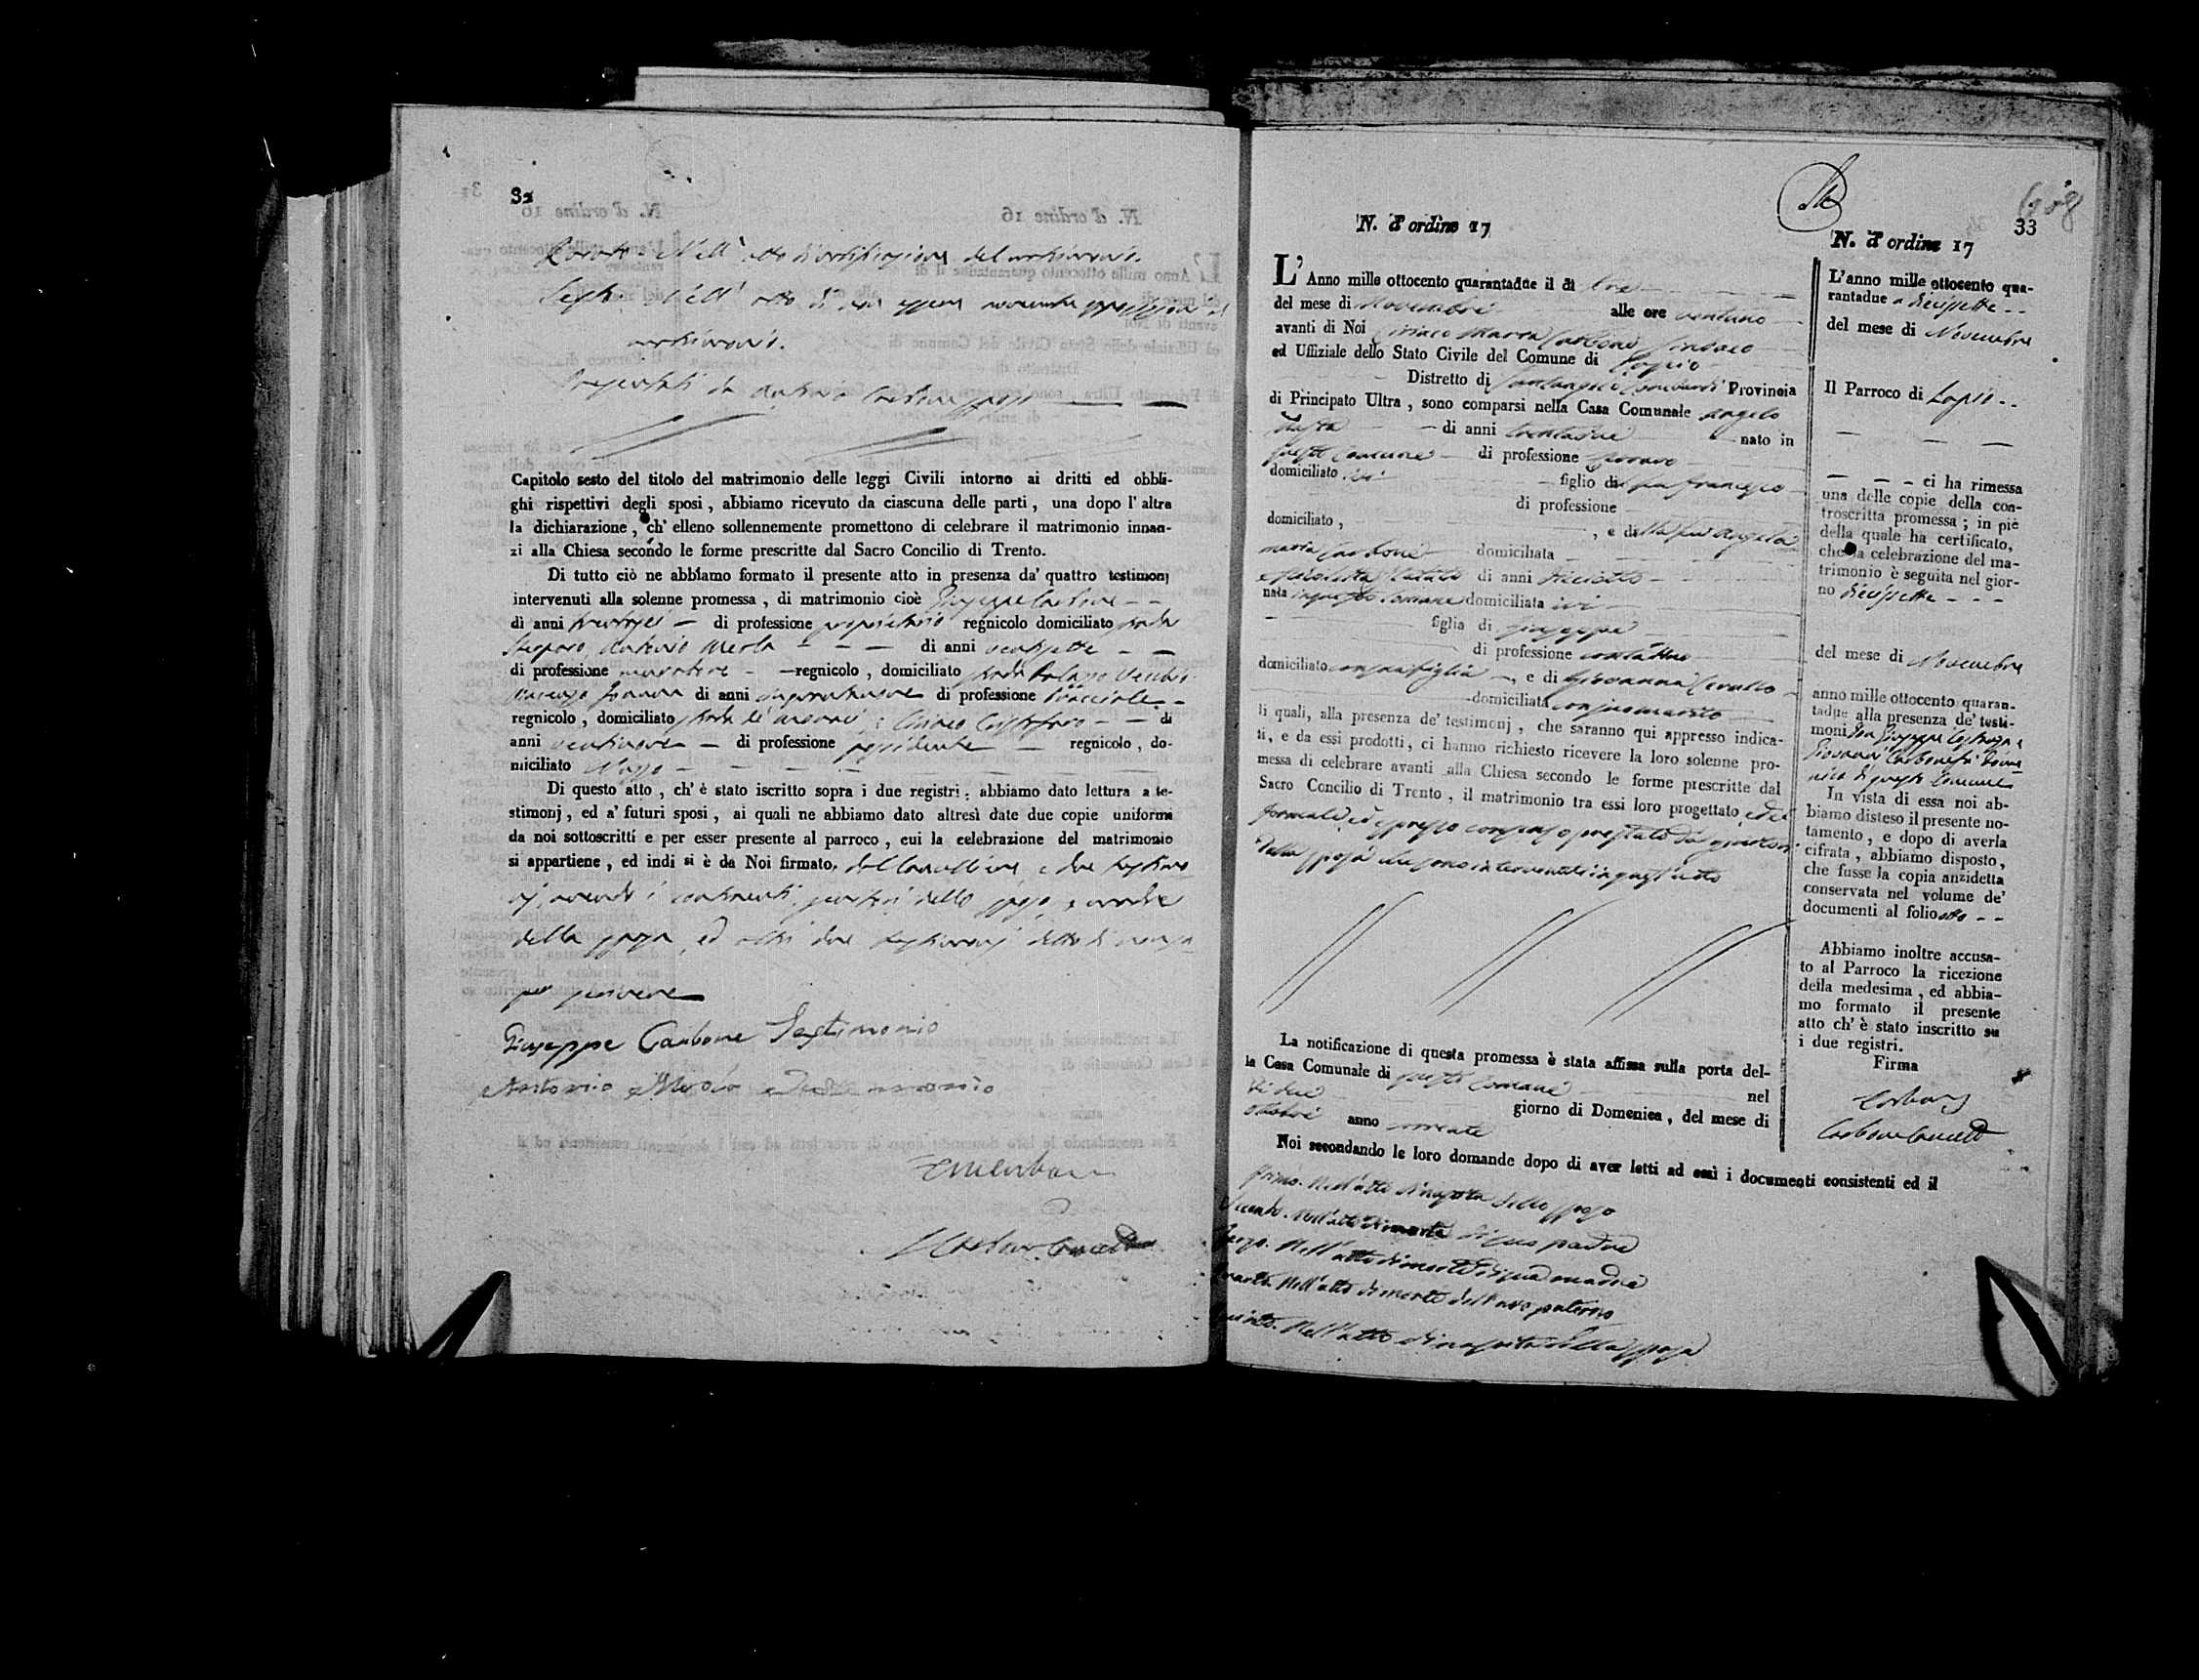 32
Quarto. Nell' atto di notificazione del matrimonio.
Sesto. Nell' atto di non essere avvenuta opposizione al
matrimonio.
Presentati da Antonio Carbone sposo
Capitolo sesto del titolo del matrimonio delle leggi Civili intorno ai dritti ed obbli-
ghi rispettivi degli sposi, abbiamo ricevuto da ciascuna delle parti, una dopo l' altra
la dichiarazione, ch' elleno sollennemente promettono di celebrare il matrimonio innan-
zi alla Chiesa secondo le forme prescritte dal Sacro Concilio di Trento.
Di tutto ciò ne abbiamo formato il presente atto in presenza da' quattro testimonj
intervenuti alla solenne promessa, di matrimonio cioè Giuseppe Carbone
di anni trentasei di professione proprietario regnicolo domiciliato strada
Antonio Merola di anni ventisette
di professione muratore regnicolo, domiciliato strada Palazzo Vecchio
Vincenzo di anni quarantanove di professione bracciale
regnicolo, domiciliato strada di
anni ventinove di professione possidente regnicolo, do-
miciliato
Di questo atto, ch' è stato iscritto sopra i due registri: abbiamo dato lettura a te-
stimonj, ed a' futuri sposi, ai quali ne abbiamo dato altresì date due copie uniformi
da noi sottoscritti e per esser presente al parroco, cui la celebrazione del matrimonio
si appartiene, ed indi si è da Noi firmato, dal Cancelliere e due testimo
nj, avendo i contraenti, genitori dello sposo, e madre
della sposa, ed altri due testimonj detto di non sa
per scrivere
Giuseppe Carbone Testimonio
Antonio Testimonio
Carbone Cancell
33
N. d' ordine 17
L' Anno mille ottocento quarantadue il di tre
del mese di Novembre alle ore ventuno
avanti di Noi Ciriaco Maria Carbone Sindaco
ed Uffiziale dello Stato Civile del Comune di Lapio
Distretto di Santangelo Lombardi Provincia
di Principato Ultra, sono comparsi nella Casa Comunale Angelo
di anni trentadue nato in
questo Comune di professione
domiciliato ivi figlio di fu Francesco
di professione
domiciliato, , e di della fu Angela
Maria Carbone domiciliata
e Nicoletta di anni diciotto
nata in questo Comune domiciliata ivi
figlia di Giuseppe
di professione contadino
domiciliato con sua figlia, e di Giovanna
domiciliata con suo marito
li quali, alla presenza de' testimonj, che saranno qui appresso indica-
ti, e da essi prodotti, ci hanno richiesto ricevere la loro solenne pro-
messa di celebrare avanti alla Chiesa secondo le forme prescritte dal
Sacro Concilio di Trento, il matrimonio tra essi loro progettato, ed il
formale, ed espresso consenso prestato da genitori
della sposa che sono intervenuti in quest' atto
La notificazione di questa promessa è stata affissa sulla porta del-
la Casa Comunale di questo Comune nel
di due giorno di Domenica, del mese di
ottobre anno corrente
Noi secondando le loro domande dopo di aver letti ad essi i documenti consistenti ed il
Primo. Nell' atto di nascita dello sposo
Secondo. Nell' atto di morte di suo padre
Terzo. Nell' atto di morte di sua madre
Quarto. Nell' atto di morte dell' avo paterno
Quinto. Nell' atto di nascita della sposa
N. d' ordine 17
L' anno mille ottocento qua-
rantadue a diecisette
del mese di Novembre
Il Parroco di Lapio
ci ha rimessa
una delle copie della con-
troscritta promessa; in piè
della quale ha certificato,
che la celebrazione del ma-
trimonio è seguita nel gior-
no diecisette
del mese di Novembre
anno mille ottocento quaran-
tadue alla presenza de' testi-
moni Giuseppe
Giovanni Carbone fu Dome
nico di questo Comune
In vista di essa noi ab-
biamo disteso il presente no-
tamento, e dopo di averla
cifrata, abbiamo disposto,
che fusse la copia anzidetta
conservata nel volume de'
documenti al folio otto
Abbiamo inoltre accusa-
to al Parroco la ricezione
della medesima, ed abbia-
mo formato il presente
atto ch' è stato inscritto su
i due registri.
Firma
Carbone
Carbone Cancell